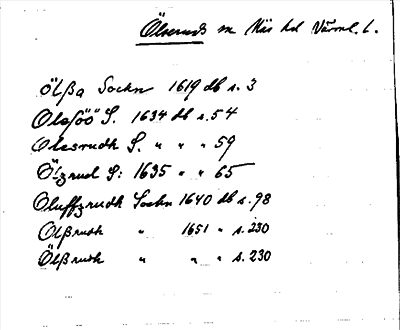 Ölseruds sn Näs hd Värml. l.
Ölßa Sockn 1619 db s. 3
Olsöö S. 1634 db s. 54
Olesrudh S. " " " 59
Ölzrud S: 1635 " " 65
Oluffzrudh Sockn 1640 db s. 98
Olßrudh " 1651 " s. 230
Ölßrudh " " " s. 230